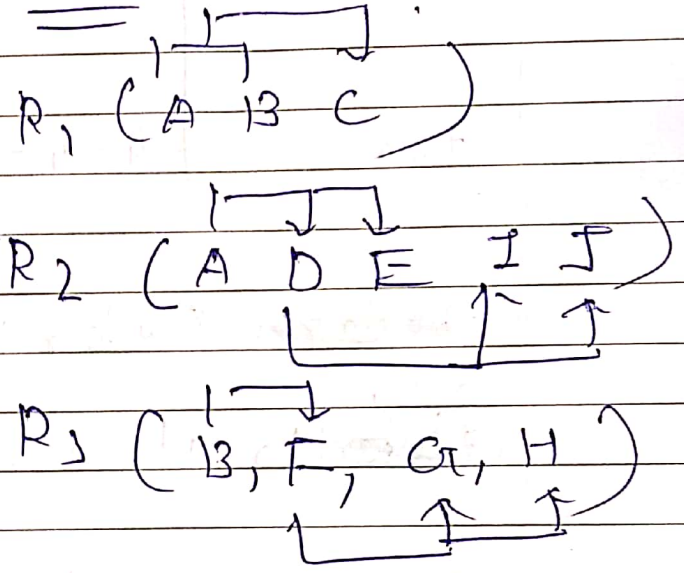 R1 (A B C)
R2 (A D E I J)
R3 (B, F, G, H)